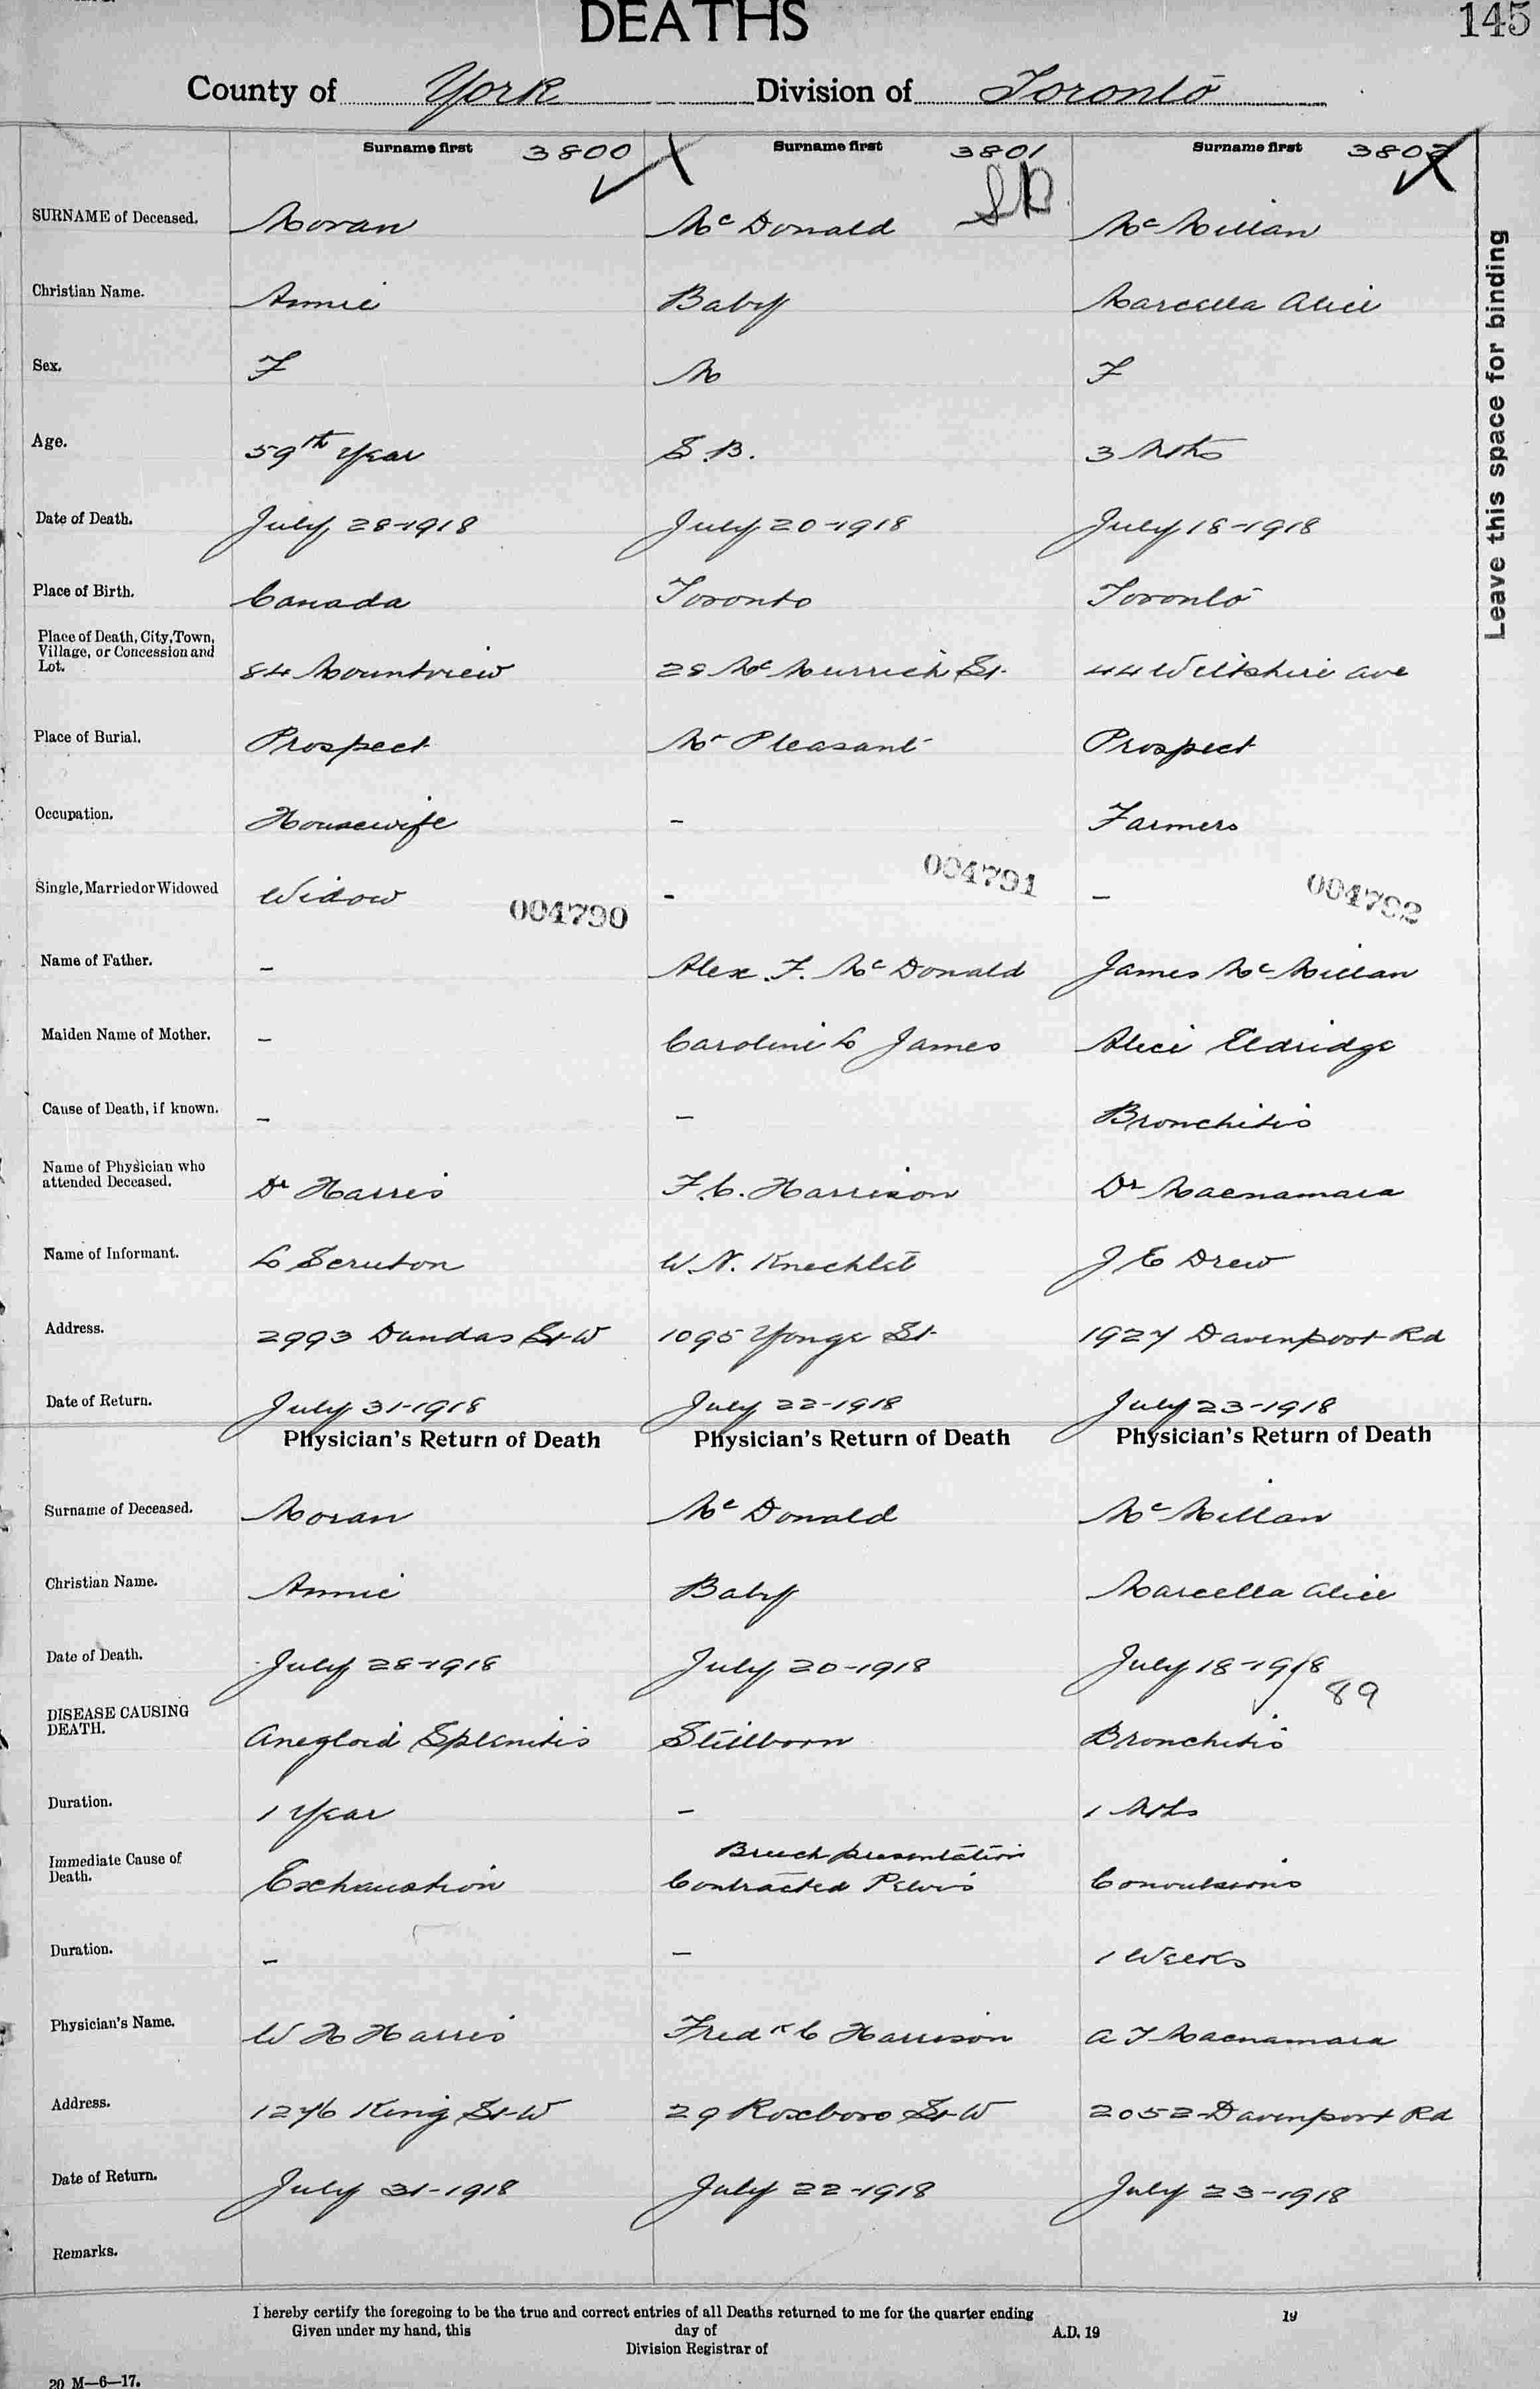 DEATHS
145
County of York Division of Toronto
Surname first 3800 Surname first 3801 Surname first 3802
SB
SURNAME of Deceased. Moran Mc Donald Mc Millan
Christian Name. Annie Baby Marcella Alice
Sex. F M F
Age. 59th Year S.B. 3 Mths
Date of Death. July 28-1918 July 20-1918 July 18-1918
Place of Birth. Canada Toronto Toronto
Place of Death, City, Town, Village, or Concession and Lot. 84 Mountview 28 Mc Murrich St. 44 Wiltshire Ave
Place of Burial. Prospect Mt Pleasant Prospect
Occupation. Housewife - Farmers
Single, Married or Widowed Widow - -
004790 004791 004792
Name of Father. - Alex. F. Mc Donald James Mc Millan
Maiden Name of Mother. - Caroline L James Alice Eldridge
Cause of Death, if known. - - Bronchitis
Name of Physician who attended Deceased. Dr Harris F.C. Harrison Dr Macnamara
Name of Informant. L Scruton W.N. Knechtel J E Drew
Address. 2993 Dundas St W 1095 Yonge St. 1927 Davenport Rd
Date of Return. July 31-1918 July 22-1918 July 23-1918
Physician's Return of Death Physician's Return of Death Physician's Return of Death
Surname of Deceased. Moran Mc Donald Mc Millan
Christian Name. Annie Baby Marcella Alice
Date of Death. July 28-1918 July 20-1918 July 18-1918
89
DISEASE CAUSING DEATH. Splenitis Stillborn Bronchitis
Duration. 1 Year - 1 Mths
Breech presentation
Immediate Cause of Death. Exhaustion Contracted Pelvis Convulsions
Duration. - - 1 Weeks
Physician's Name. W H Harris Fredk C Harrison A T Macnamara
Address. 1276 King St W 29 Roxboro St W 2052 Davenport Rd
Date of Return. July 31-1918 July 22-1918 July 23-1918
Remarks.
I hereby certify the foregoing to be the true and correct entries of all Deaths returned to me for the quarter ending 19
Given under my hand, this day of A.D. 19
Division Registrar of
20 M—6—17.
Leave this space for binding